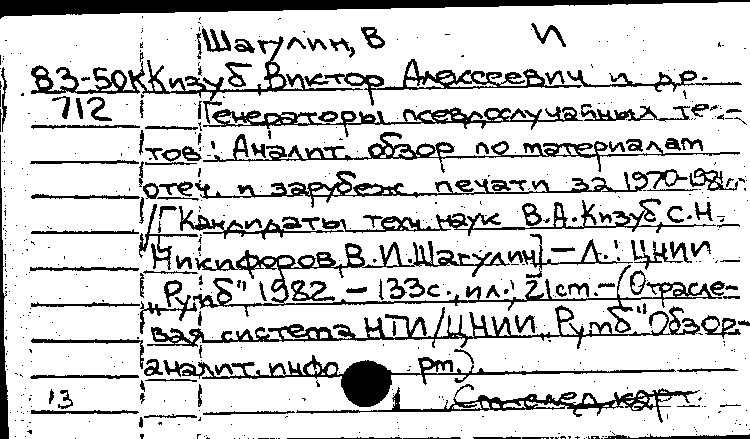 Шагулин, В И
83-50К Кизуб, Виктор Алексеевич и др.
712 Генераторы псевдослучайных тес-
тов: Аналит. обзор по материалам
отеч. и зарубеж. печати за 1970-1981гг.
/[Кандидаты техн. наук В.А.Кизуб, С.Н.
Никифоров, В.И.Шагулин]. — Л.: ЦНИИ
„Румб", 1982. — 133с., ил.; 21см. — (Отрасле-
вая система НТИ/ЦНИИ „Румб". Обзор.-
аналит. инфо рм.).
13 См. след. карт.